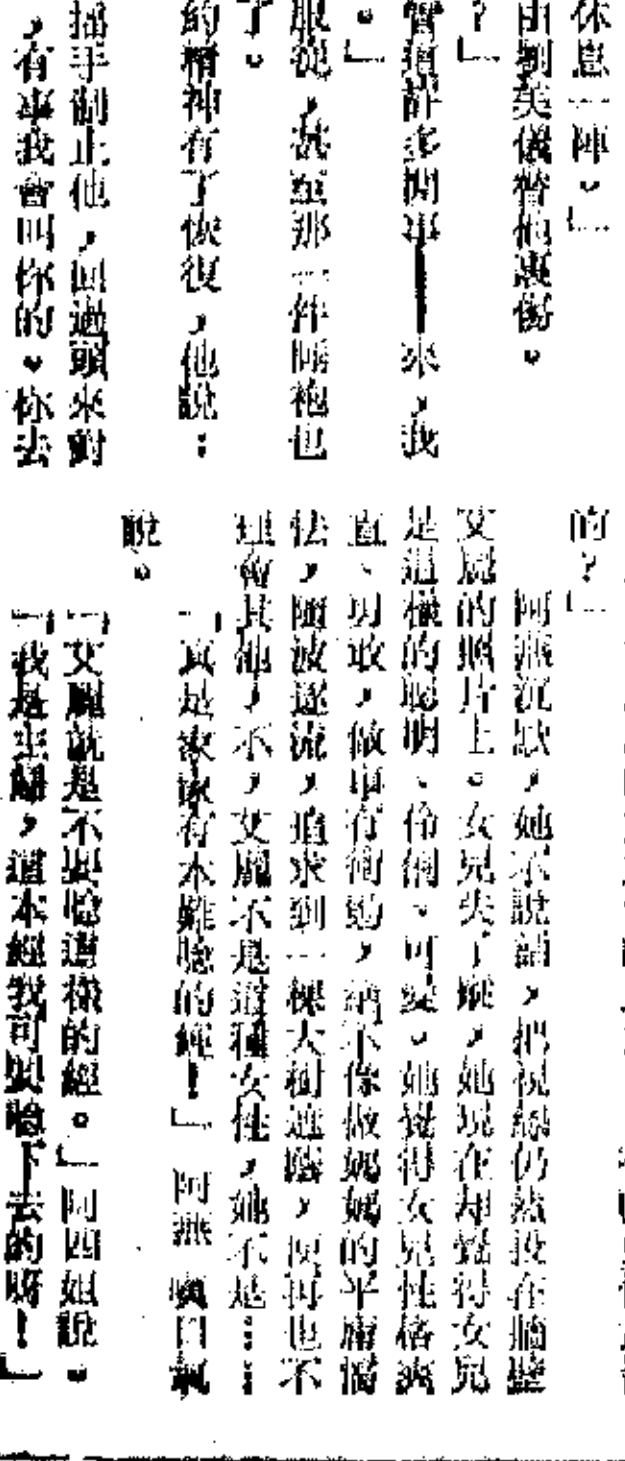 休息一陣。」
由劉美儀替他裹傷。
？」
管這許多閒事——來，我
。」
服從，甚至那一件睡袍也
了。
的精神有了恢復，他說：
搖手制止他，回過頭來對
，有事我會叫你的。你去
的？」
阿燕沉默，她不說話，把視線仍然投在牆壁
艾麗的照片上。女兒失了蹤，她現在却覺得女兒
是這樣的聰明、伶俐、可愛。她覺得女兒性格爽
直、勇敢，做事有衝勁，稍不像做媽媽的平庸懦
怯，隨波逐流，追求到一棵大樹遮蔭，便再也不
理會其他，不，艾麗不是這種女性，她不是⋯⋯
「眞是家家有本難唸的經！」阿燕嘆口氣
說。
「艾麗就是不要唸這樣的經。」阿四姐說。
「我是主婦，這本經我可要唸下去的呀！」